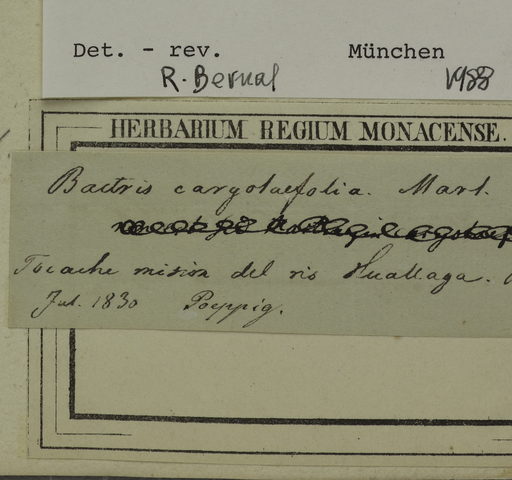 Det. - rev. München
R. Bernal 1988
HERBARIUM REGIUM MONACENSE.
Bactris caryotaefolia. Mart.
Tocache mision del rio Huallaga.
Jul. 1830 Poeppig.